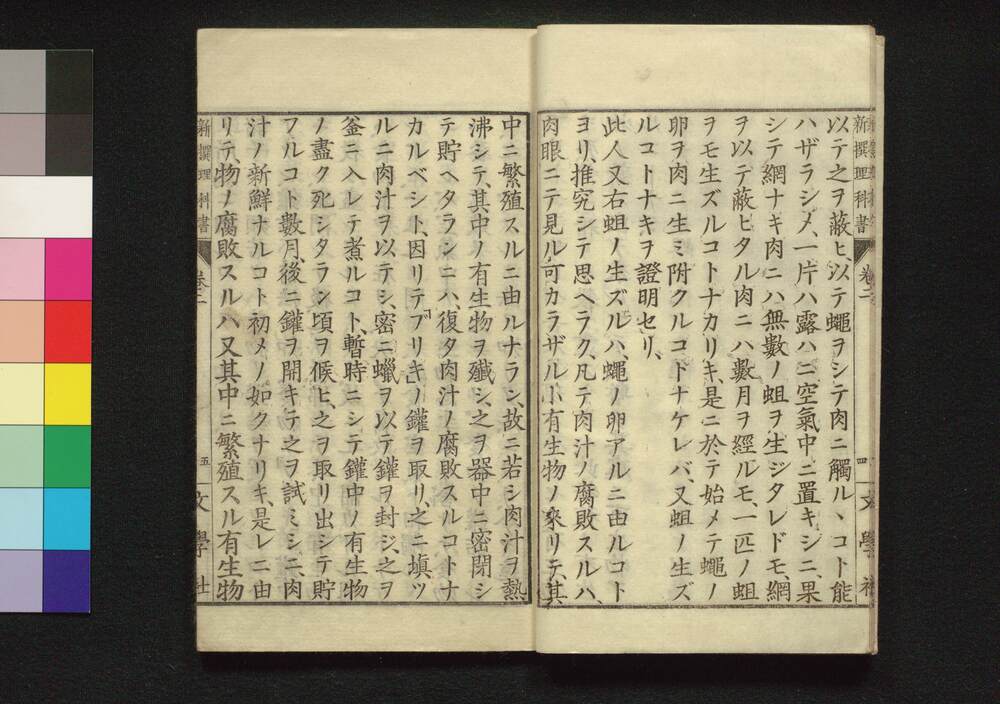 新撰理科書 卷二 四 文學社
以テ之ヲ蔽ヒ、以テ蠅ヲシテ肉ニ觸ルヽコト能
ハザラシメ、一片ハ露ハニ空氣中ニ置キシニ、果
シテ網ナキ肉ニハ無數ノ蛆ヲ生ジタレドモ、網
ヲ以テ蔽ヒタル肉ニハ數月ヲ經ルモ、一匹ノ蛆
ヲモ生ズルコトナカリキ、是ニ於テ始メテ蠅ノ
卵ヲ肉ニ生ミ附クルコトナケレバ、又蛆ノ生ズ
ルコトナキヲ證明セリ、
此人又右蛆ノ生ズルハ、蠅ノ卵アルニ由ルコト
ヨリ、推究シテ思ヘラク、凡テ肉汁ノ腐敗スルハ、
肉眼ニテ見ル可カラザル小有生物ノ來リテ、其
中ニ繁殖スルニ由ルナラン、故ニ若シ肉汁ヲ熱
沸シテ、其中ノ有生物ヲ殲シ、之ヲ器中ニ密閉シ
テ貯ヘタランニハ、復タ肉汁ノ腐敗スルコトナ
カルベシト、因リテブリキノ鑵ヲ取リ、之ニ塡ツ
ルニ肉汁ヲ以テシ、密ニ蠟ヲ以テ鑵ヲ封ジ、之ヲ
釜ニ入レテ煮ルコト、暫時ニシテ鑵中ノ有生物
ノ盡ク死シタラン頃ヲ候ヒ、之ヲ取リ出シテ貯
フルコト數月、後ニ鑵ヲ開キテ之ヲ試ミシニ、肉
汁ノ新鮮ナルコト初メノ如クナリキ、是レニ由
リテ、物ノ腐敗スルハ又其中ニ繁殖スル有生物
新撰理科書 卷二 五 文學社